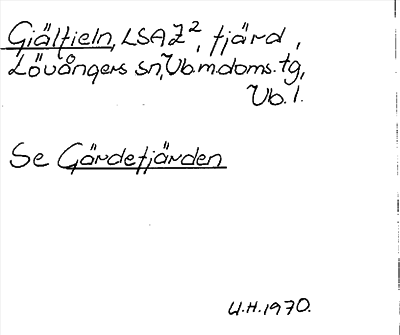 Giälfieln, LSAZ², fjärd,
Lövångers sn, Vb.m.doms.tg,
Vb.l.
Se Gärdefjärden
U.H.1970.